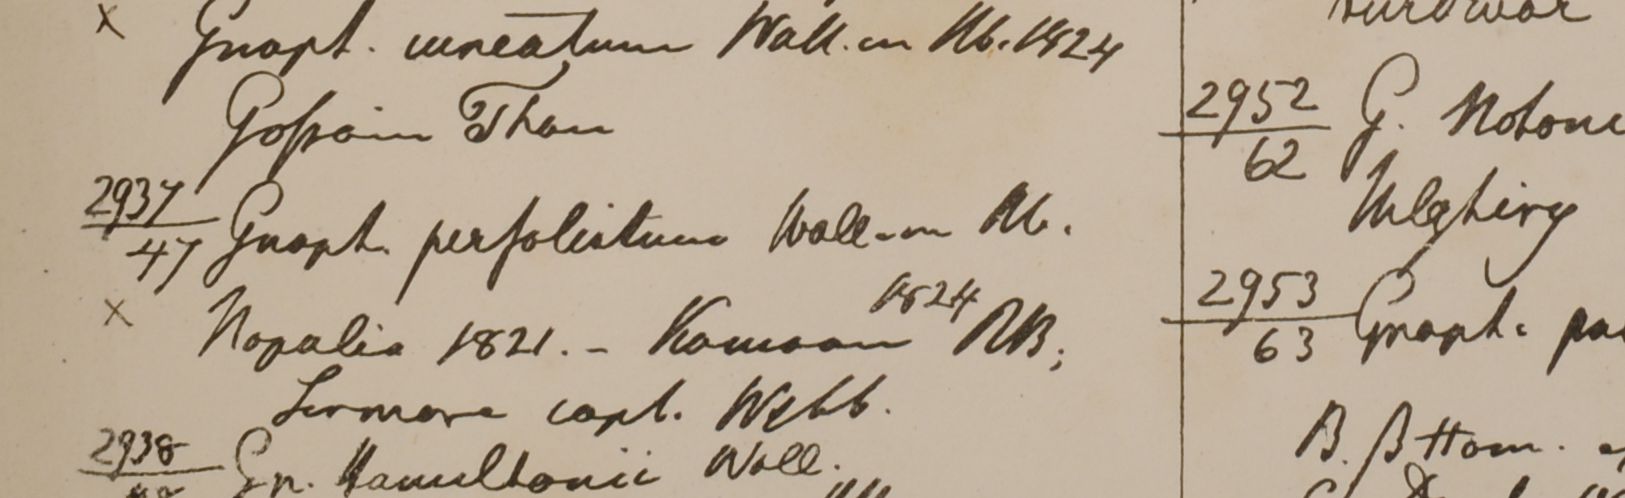 x Gnaph. cuneatum Wall. in Hb. 1824
Gossain Than
2937
47 Gnaph. perfoliatum Wall. in Hb.
x Napalia 1821. - Kamaon 1824 RB;
Sirmore capt. Webb.
2938
Gn. Hamiltonii Wall.
Hurdwar
2952
62 G.
Nilghiry
2953
63 Gnaph.
B. β Hb Ham.